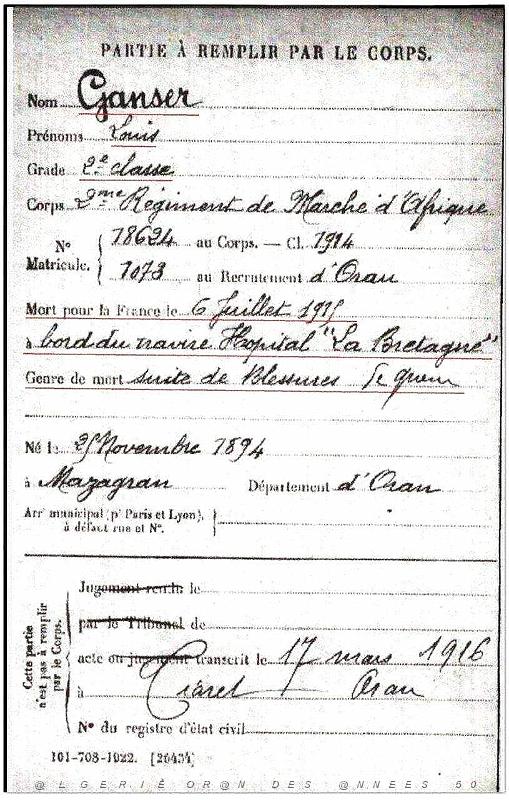 PARTIE À REMPLIR PAR LE CORPS.
Nom Ganser
Prénoms Louis
Grade 2e classe
Corps 2me Régiment de Marche d'Afrique
No Matricule. { 18624 au Corps. — Cl. 1914
1073 au Recrutement d'Oran
Mort pour la France le 6 Juillet 1915
à bord du navire Hôpital "La Bretagne"
Genre de mort suite de Blessures de guerre
Né le 25 Novembre 1894
à Mazagran Département d'Oran
Arrt municipal (pr Paris et Lyon), à défaut rue et No. }
Cette partie n'est pas à remplir par le Corps.
Jugement rendu le
par le Tribunal de
acte ou jugement transcrit le 17 mars 1916
à Tiaret Oran
No du registre d'état civil
101-708-1922. [26434]
@ L G E R I E O R @ N D E S @ N N E E S 5 0